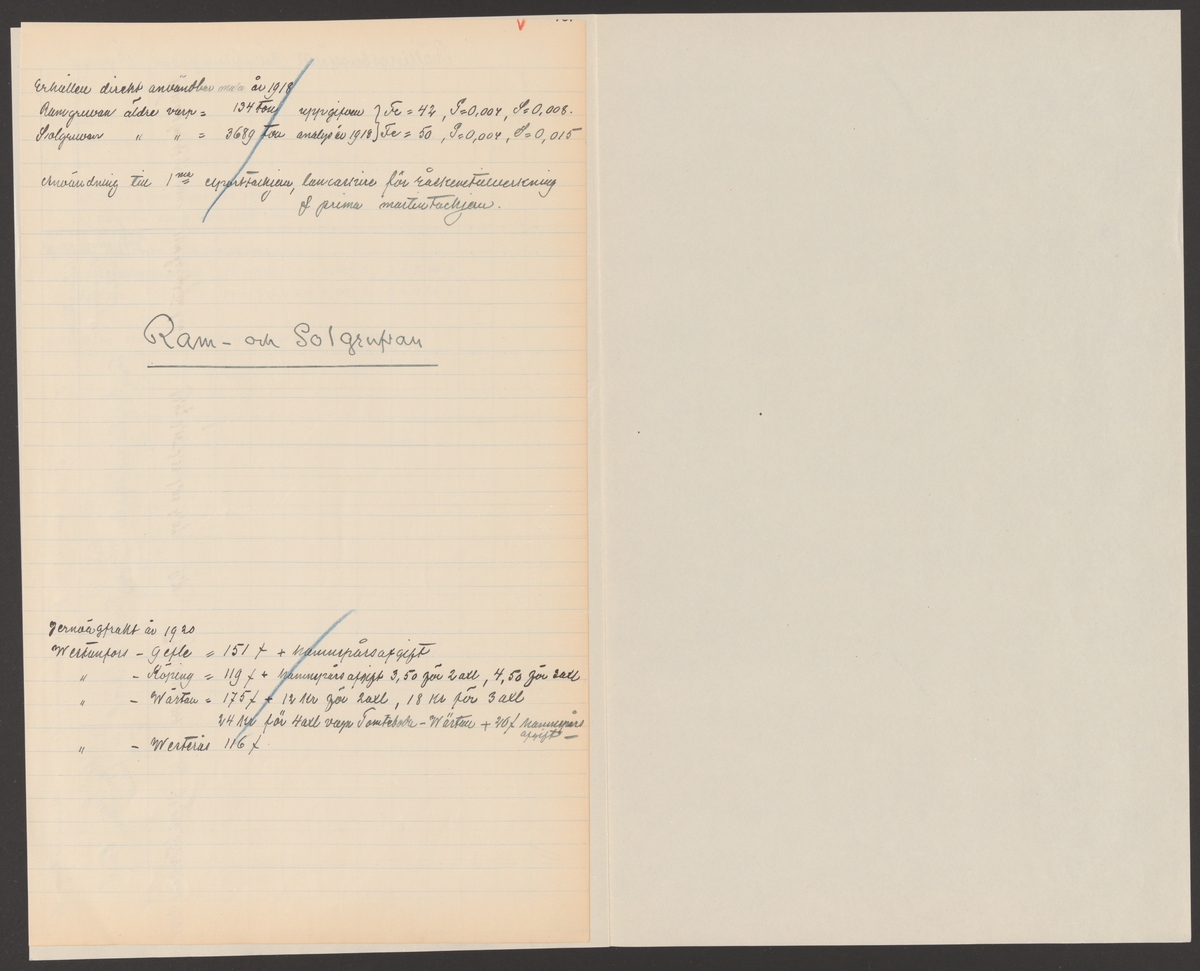 Erhållen direkt användbar malm år 1918
Ramgruvan äldre varp = 134 ton uppgifven } Fe = 42, P=0,004, S=0,008.
Solgruvan " " = 3689 ton analys år 1918 } Fe = 50, P=0,004, S=0,015
Användning till 1ma exporttackjern, lancashire för råskenstillverkning
& prima martintackjern.
Ram- och Solgrufvan
Jernvägsfrakt år 1920
Westanfors - Gefle = 151 f + hamnspårsafgift
" - Köping = 119 f + hamnspårsafgift 3,50 för 2axl, 4,50 för 3axl
" - Wärtan = 175 f + 12 kr för 2axl, 18 kr för 3axl
24 kr för 4axl vagn Tomteboda - Wärtan + 20 f hamnspårs
afgift
" - Westerås 116 f